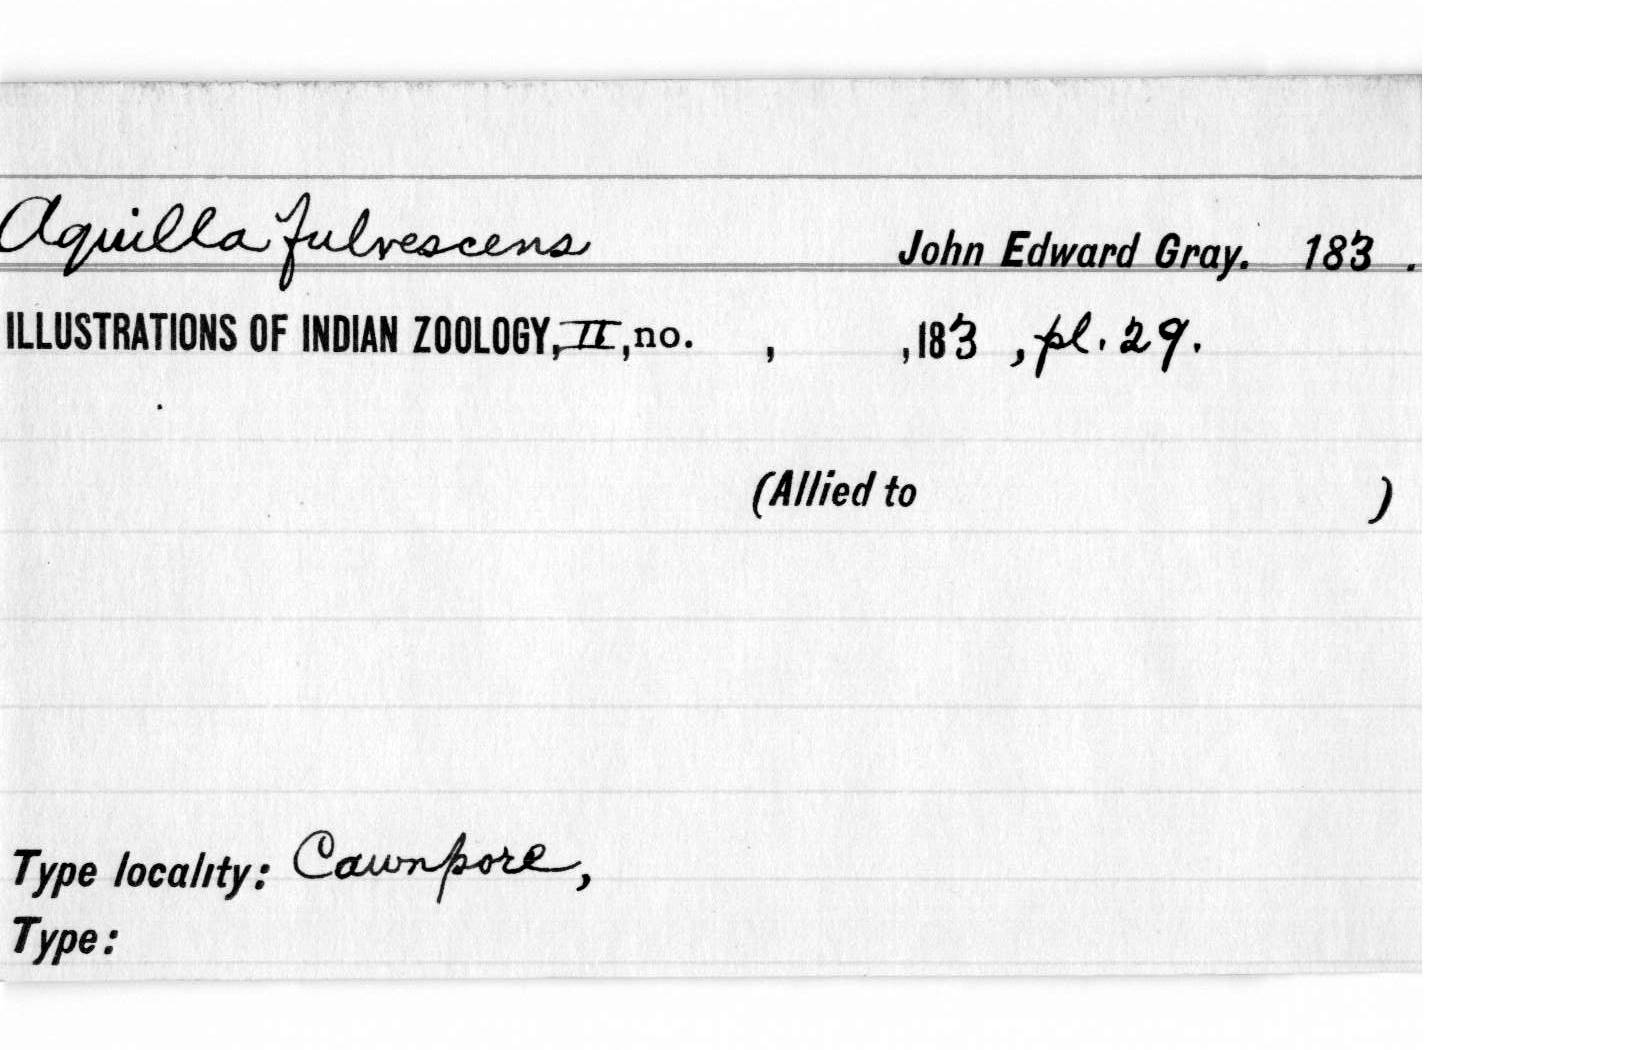 Aquilla fulvescens John Edward Gray. 183 .
ILLUSTRATIONS OF INDIAN ZOOLOGY, II, no. , , 183 , pl. 29.
(Allied to )
Type locality: Cawnpore,
Type: